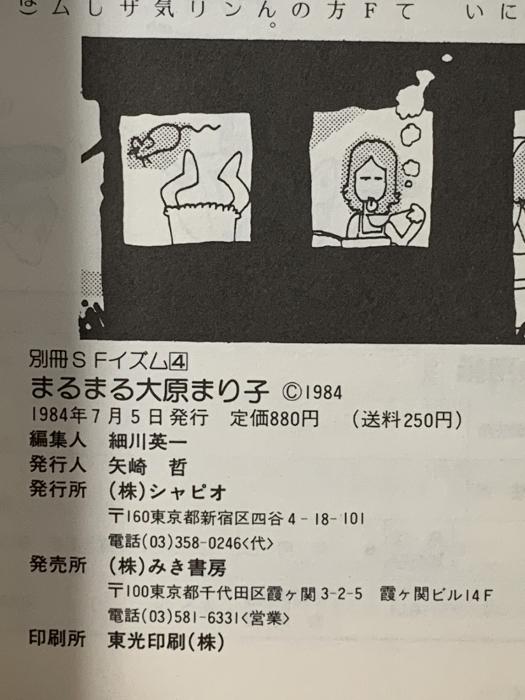 に
い
てF
方
の
ん。
ン
リ
気
ザ
し
ム
別冊SFイズム4
まるまる大原まり子 ©1984
1984年7月5日発行 定価880円 (送料250円)
編集人 細川英一
発行人 矢崎 哲
発行所 (株)シャピオ
〒160東京都新宿区四谷4-18-101
電話(03)358-0246<代>
発売所 (株)みき書房
〒100東京都千代田区霞ヶ関3-2-5 霞ヶ関ビル14F
電話(03)581-6331<営業>
印刷所 東光印刷(株)